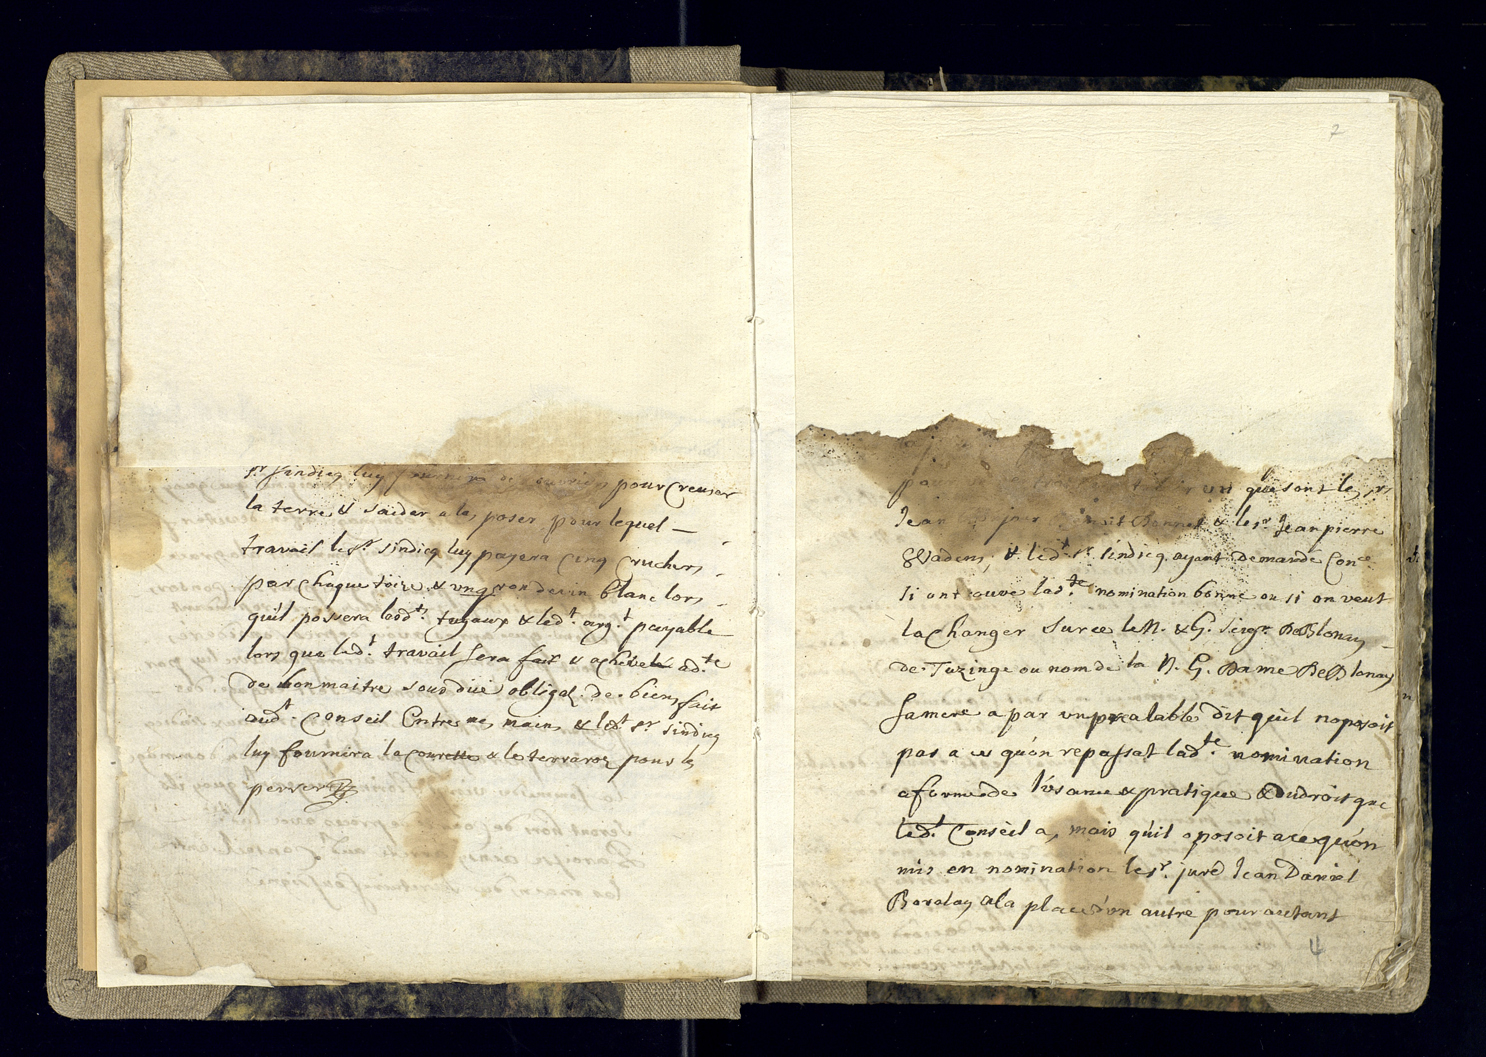 sr sindicq luy pour Creuser
la terre & saider a les poser pour lequel
travail le sr. sindicq luy payera cinq cruchers
par chaque toize & vng ron de vin blanc lors
quil possera lesdts. tuyaux & led.t arg.t payable
lors que led.t travail sera fait & achevé ad.te
de bon maitre sous due obligaõ. de biens fait
aud.t Conseil Entre mes mains & led.t sr. sindicq
luy fournira la Courette & le terraroz pour les
perser
2
qui sont les srs
Jean Benoit Bonnet & le sr. Jean pierre
Wadens, & led.t sr. sindicq ayant demandé Con.e
si on trouve lad.te nomination bonne ou si on veut
la changer sur ce le N. & G. seigr. De Blonay
de Tuzinge ou nom de la N. G. Dame De Blonay
sa mere a par vn prealable dit quil noposoit
pas a ce qu'on repassat lad.te nomination
a forme de l'vsance & pratique & du droit que
led.t Conseil a, mais quil oposoit a ce quon
mis en nomination le sr. juré Jean Daniel
a la place d'vn autre pour autant